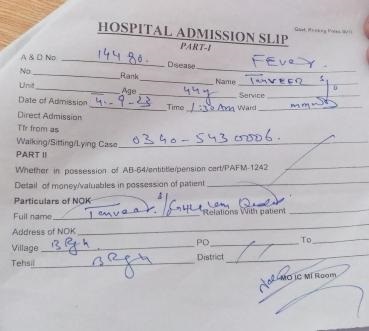 HOSPITAL ADMISSION SLIP
PART-I
A & D No. 14480. Disease Fever.
No. Rank Name Tanveer
Unit Age 44y Service
Date of Admission 4-9-23 Time 1:30 Am Ward
Direct Admission
Tfr from as
Walking/Sitting/Lying Case 0340-5430006.
PART II
Whether in possession of AB-64/entitlie/pension cert/PAFM-1242
Detail of money/valuables in possession of patient
Particulars of NOK
Full name Tanveer Relations With patient
Address of NOK
Village BRgh PO To
Tehsil BRgh District
MO IC MI Room